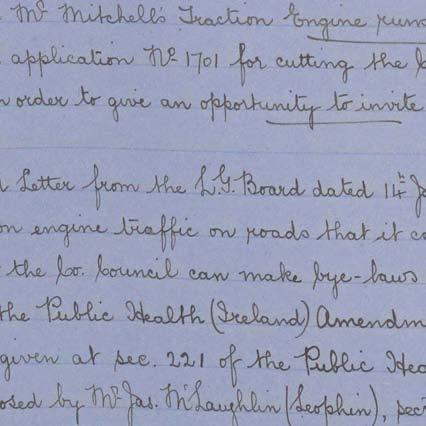 Mr Mitchell's Traction Engine runs
application No 1701 for cutting the
order to give an opportunity to invite
Letter from the L.G. Board dated 14th
on engine traffic on roads that it
the Co. Council can make bye-laws
the Public Health (Ireland) Amendm
given at sec. 221 of the Public Hea
osed by Mr Jas. McLaughlin (Leophin), sec